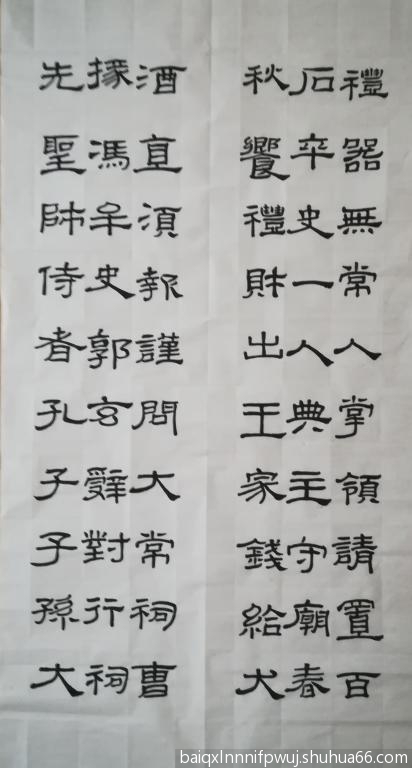 禮器無常人掌領請置百
石卒史一人典主守廟春
秋饗禮財出王家錢給犬
酒直須報謹問大常祠曹
掾馮牟史郭玄辭對行祠
先聖師侍者孔子子孫大
baiqxlnnnifpwuj.shuhua66.com